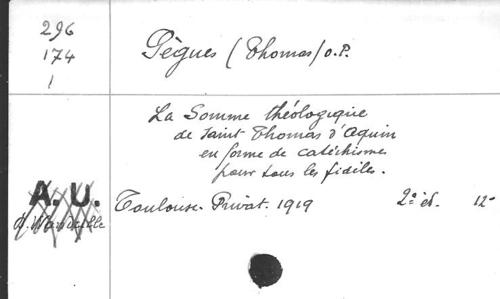 296
174
1
Pègues (Thomas) O.P.
La Somme théologique
de Saint Thomas d'Aquin
en forme de catéchisme
pour tous les fidèles.
A. U.
Toulouse. Privat. 1919 2e éd. 12°